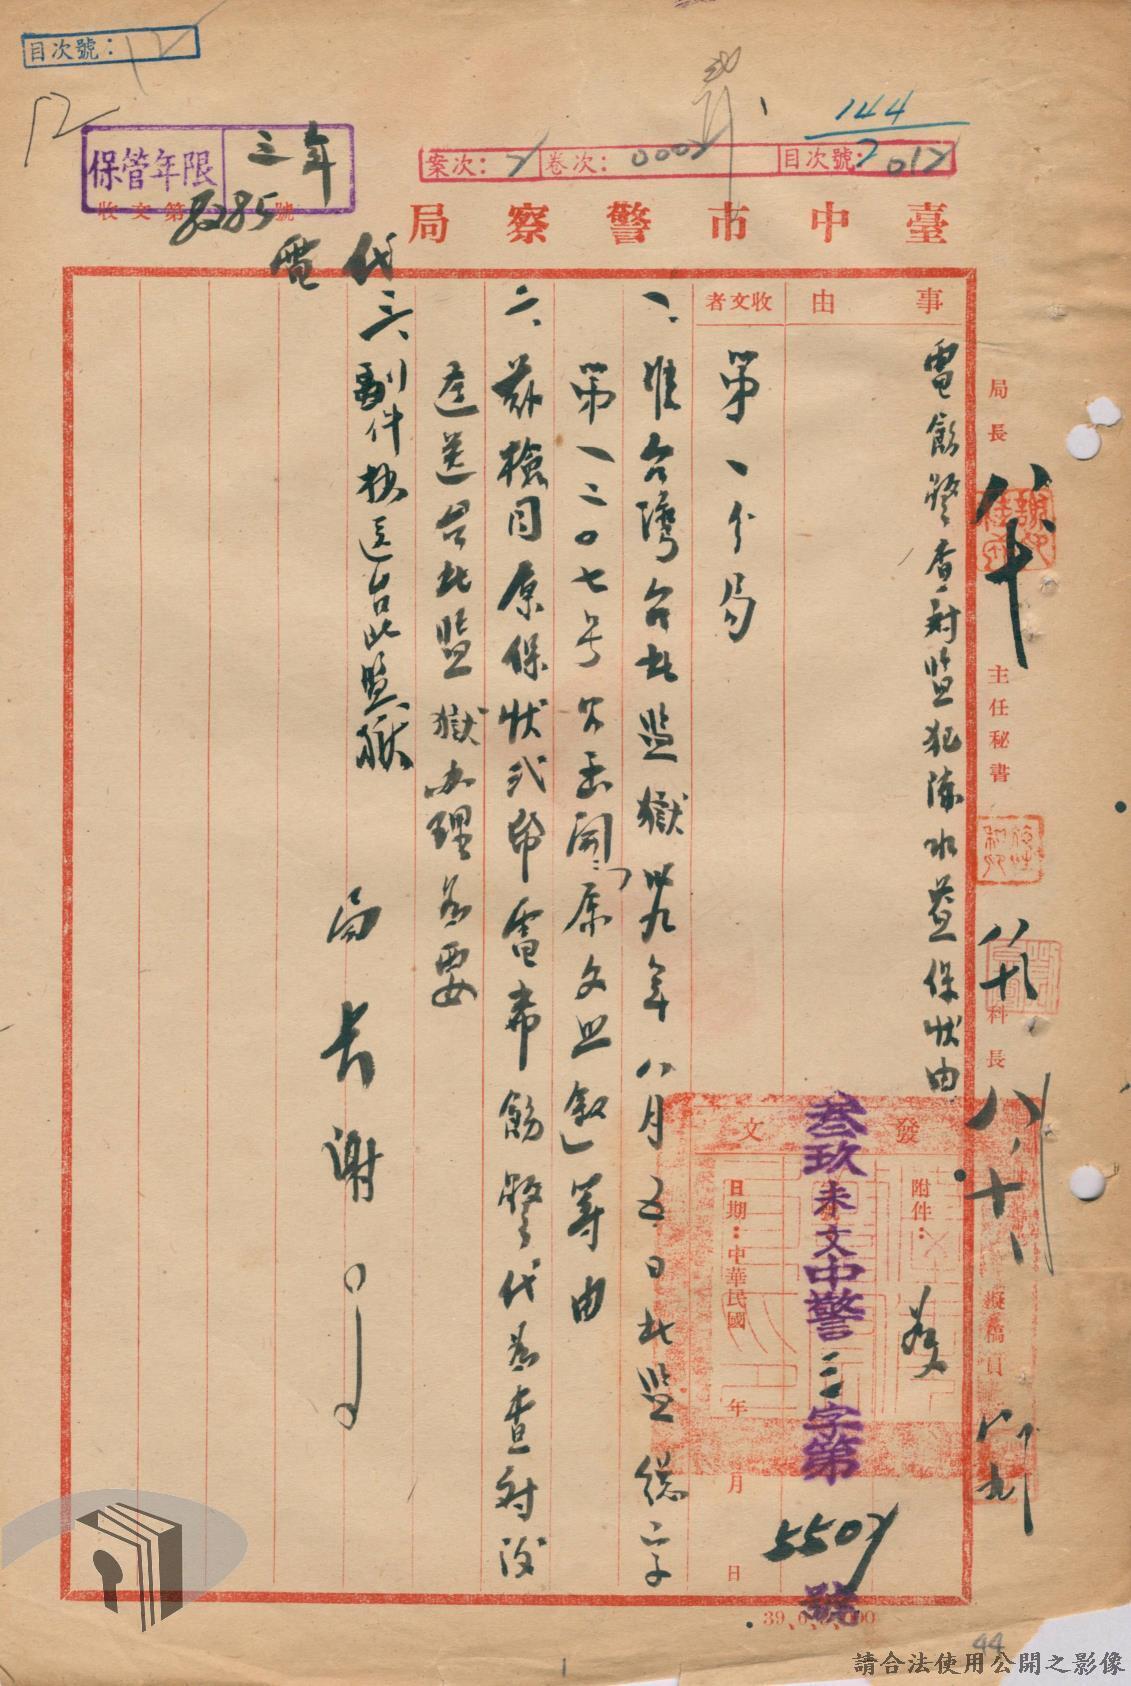 目次號：12
12
保管年限 三年
收文第8285號
144
案次：2 卷次：0002 目次號：012
臺中市警察局
代電
事由
電飭警查對監犯陳水益保狀由
收文者
第一分局
一、准台灣台北監獄卅九年八月五日北監總二字
第一二〇七号公函開「原文照敘」等由
二、茲檢同原保狀弍帋電希飭警代為查對後
逕送台北監獄办理為要
三、副件抄送台北監獄
局長謝
局長
主任秘書
科長
擬稿員
發文
附件：
叁玖未文中警三字第5507號
日期：中華民國 年 月 日
44
請合法使用公開之影像